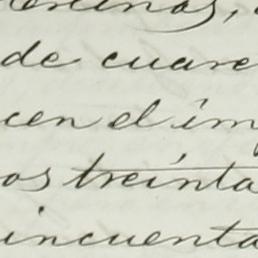 de cuare
cen el im
os treinta
incuenta